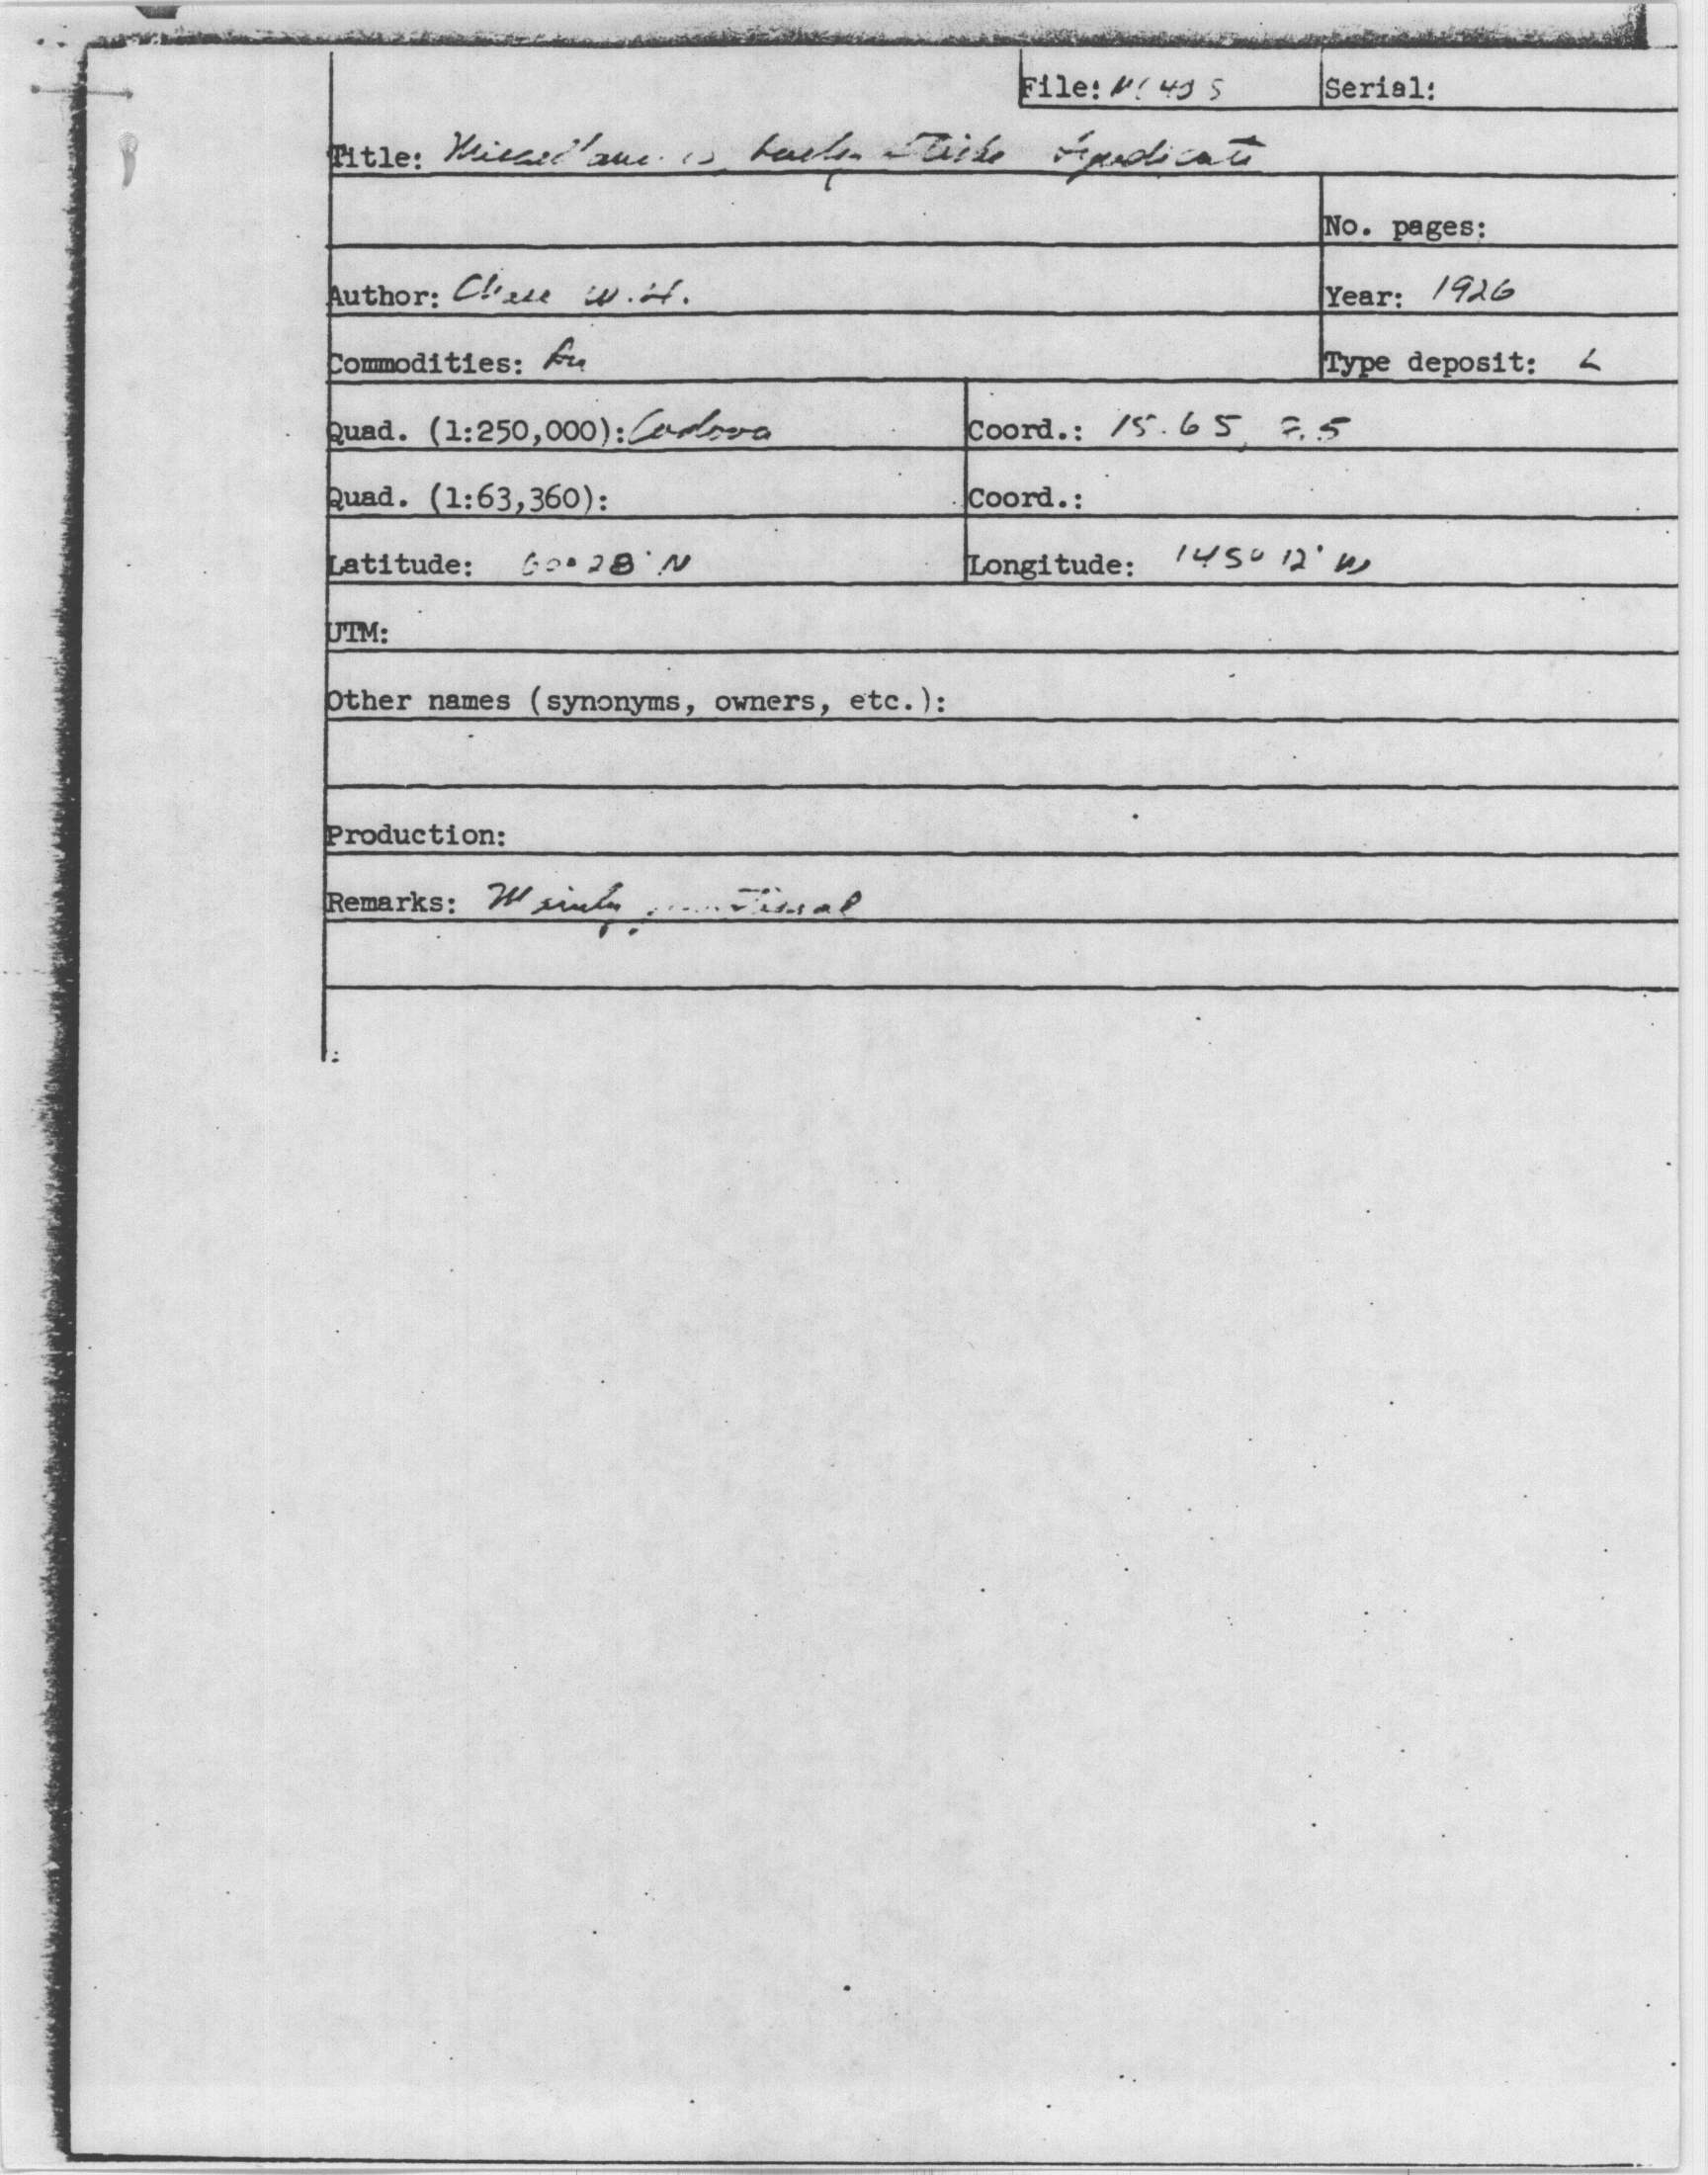 File: Serial:
Title: Syndicate
No. pages:
Author: Chase W.H. Year: 1926
Commodities: Au Type deposit: L
Quad. (1:250,000): Cordova Coord.: 15.65,
Quad. (1:63,360): Coord.:
Latitude: 60° 28' N Longitude: 145° 12' W
UTM:
Other names (synonyms, owners, etc.):
Production:
Remarks: Mainly